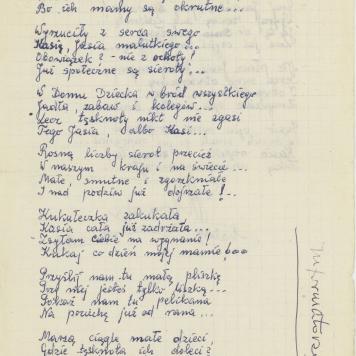 Bo ich mamy są okrutne...
Wyrzuciły z serca swego
Kasię, Jasia malutkiego...
Obowiązek? - nie z ochoty!
Już społeczne są sieroty...
W Domu Dziecka w bród wszystkiego
Jadła, zabaw i kolegów...
Lecz tęsknoty nikt nie zgasi
Tego Jasia, albo Kasi...
Rosną liczby sierot przecież
W naszym kraju i na świecie...
Małe, smutne i zgorzkniałe
I nad podziw już dojrzałe!..
Kukułeczka zakukała
Kasia cała już zadrżała...
Zsyłam ciebie na wygnanie!
Kukaj co dzień mojej mamie!...
Przyślij nam tu małą pliszkę
Przy niej jesteś tylko
Pokaż nam tu pelikana
Na pociechę już od rana...
Marzą ciągle małe dzieci,
Gdzie tęsknota ich doleci?